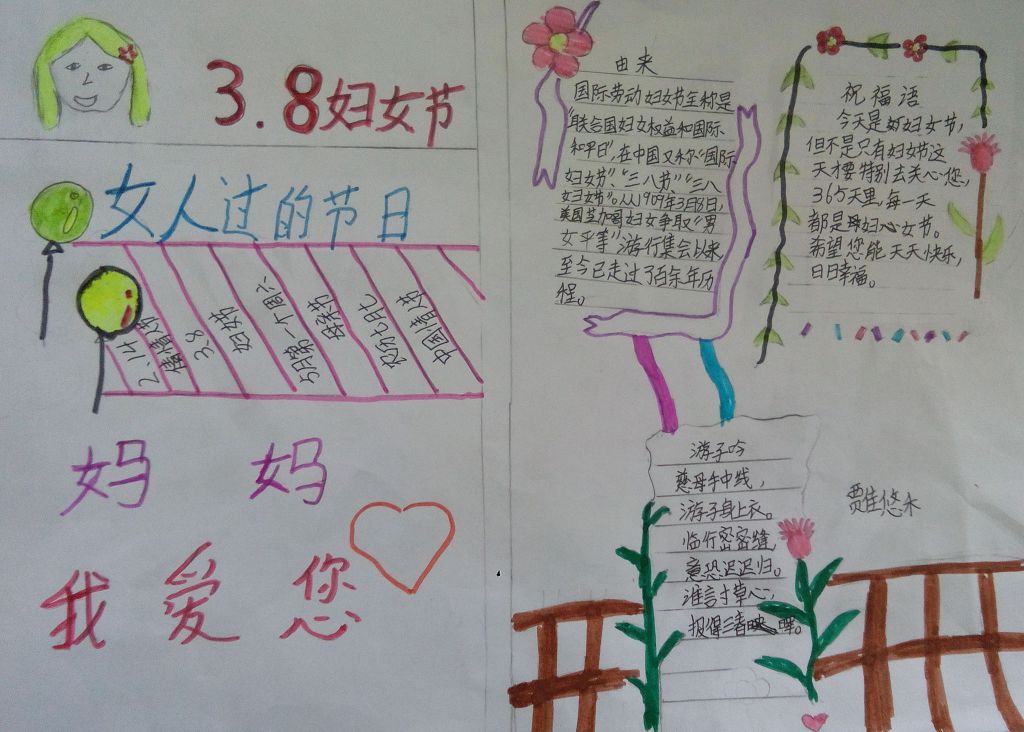 3.8妇女节
女人过的节日
2.14
情人节
3.8
妇女节
5月第一个周六
母亲节
农历七月七
中国情人节
妈 妈
我 爱 您
由来
国际劳动妇女节全称是
“联合国妇女权益和国际
和平日”,在中国又称“国际
妇女节”、“三八节”“三八
妇女节”。从1909年3月8日,
美国芝加哥妇女争取“男
女平等”游行集会以来,
至今已走过了百余年历
程。
祝福语
今天是妇女节,
但不是只有妇女节这
天才要特别去关心您,
365天里,每一天
都是妇心女节。
希望您能天天快乐,
日日幸福。
游子吟
慈母手中线,
游子身上衣。
临行密密缝,
意恐迟迟归。
谁言寸草心,
报得三春晖。
贾佳悠禾